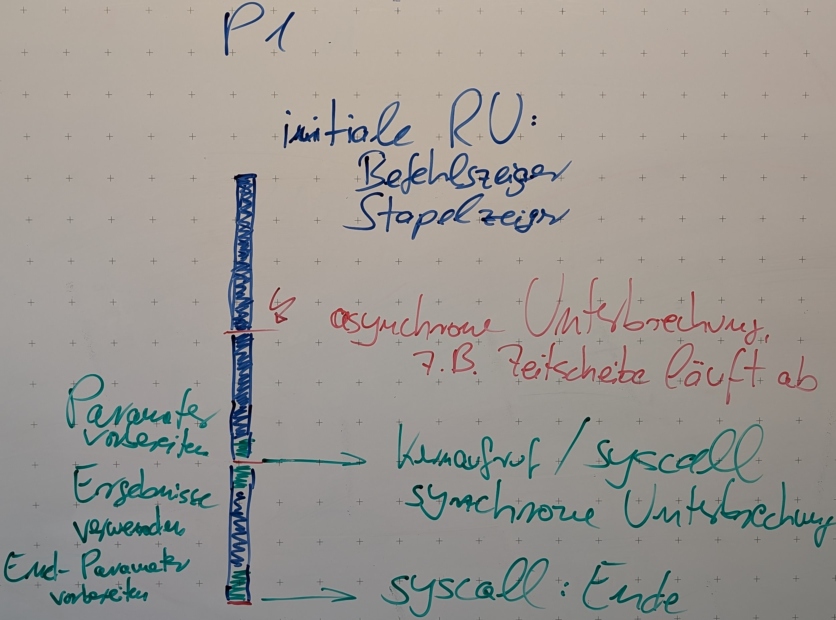 P1
initiale RU:
Befehlszeiger
Stapelzeiger
asynchrone Unterbrechung,
z.B. Zeitscheibe läuft ab
Parameter
vorbereiten
Kernaufruf / syscall
synchrone Unterbrechung
Ergebnisse
verwenden
End-Parameter
vorbereiten
syscall: Ende